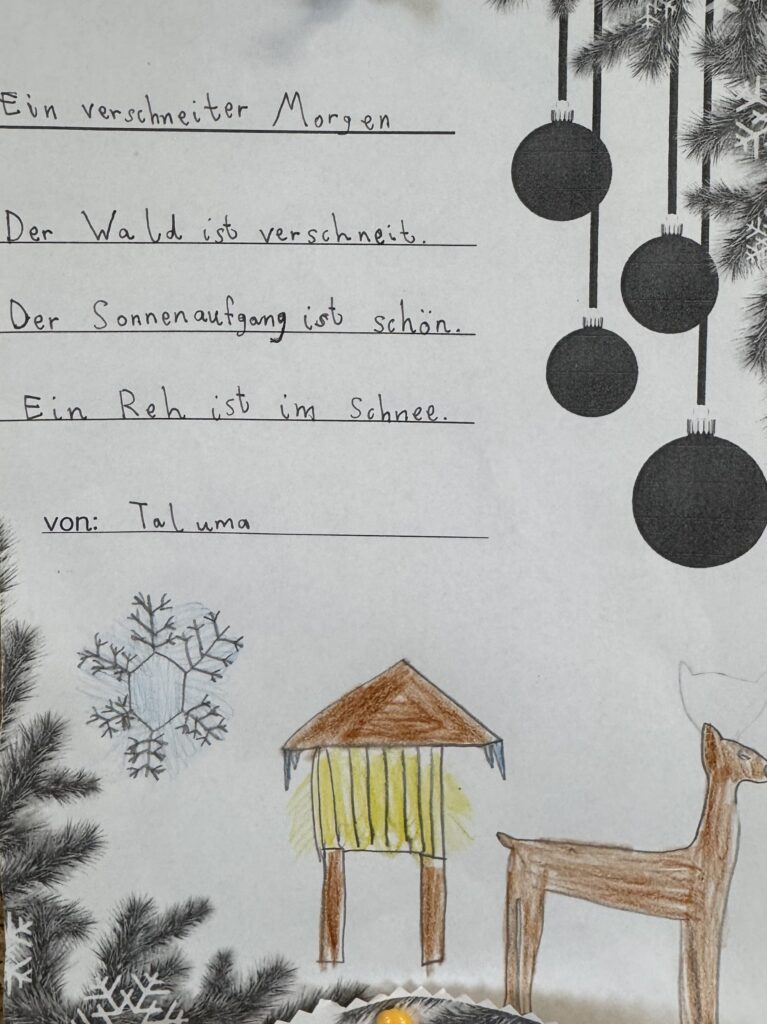 Ein verschneiter Morgen
Der Wald ist verschneit.
Der Sonnenaufgang ist schön.
Ein Reh ist im Schnee.
von: Taluma